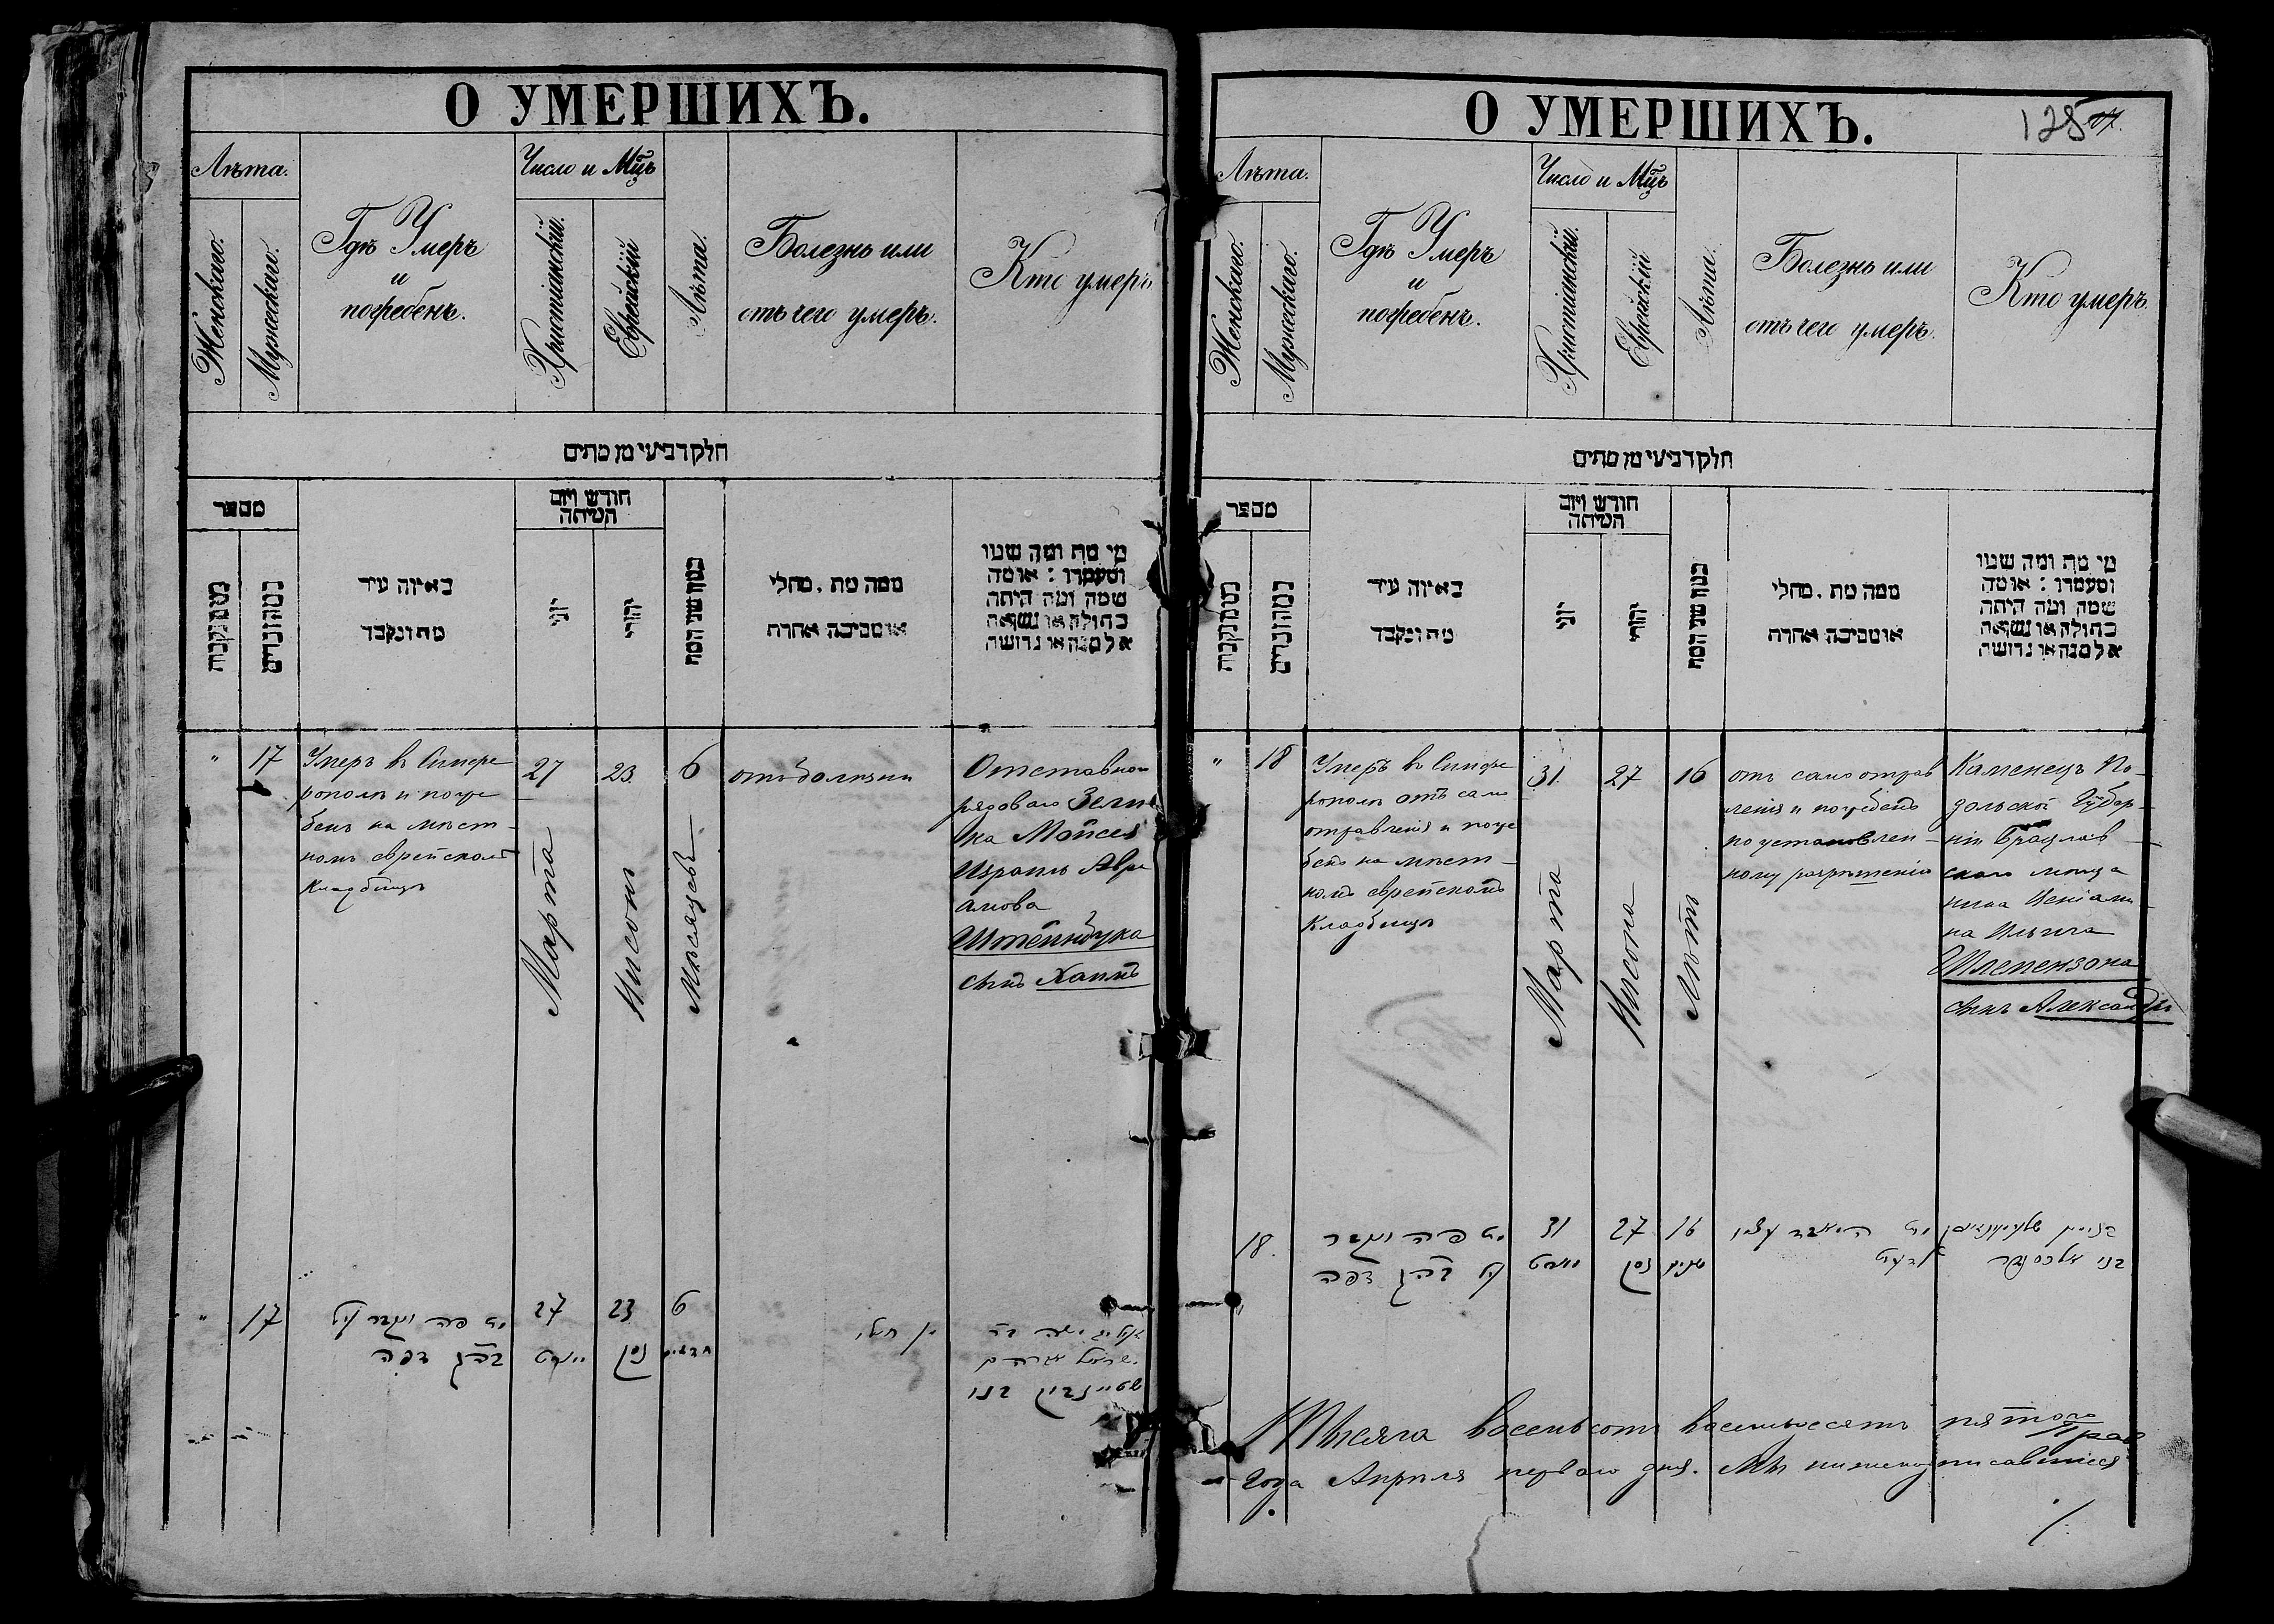 О УМЕРШИХЪ.
Лѣта.
Женскаго.
Мужескаго.
Гдѣ Умеръ
и
погребенъ.
Число и Мцъ
Христіанскій.
Еврейскій
Лѣта.
Болезнь или
отъ чего умеръ.
Кто умеръ
חלק רביעי מן מתים
מספר
כמה נקבות
כמה זכרים
באיזה עיר
מת ונקבר
חודש ויום
המיתה
יוני
יהודי
כמה שני המת
ממה מת, מחלי
או מסיבה אחרת
מי מת ומה שמו
ומעמדו: או מה
שמה ומה היתה
בתולה או נשואה
אלמנה או גרושה
" 17
Умеръ въ Симфе
рополѣ и погре
бенъ на мѣст-
номъ еврейскомъ
Кладбищѣ
27
Марта
23
Нисонъ
6
Мѣсяцевъ
отъ болезни
Отставного
рядоваго Зели
ка Мойсея
Израиль Авра
амова
Штейнбука
сынъ Хаимъ
" 17
מת פה ונקבר
בהק דפה
27
מארט
23
ניסן
6
חדשים
שטיינבוק בנו
О УМЕРШИХЪ.
125
Лѣта.
Женскаго.
Мужескаго.
Гдѣ Умеръ
и
погребенъ.
Число и Мцъ
Христіанскій.
Еврейскій
Лѣта.
Болезнь или
отъ чего умеръ.
Кто умеръ.
חלק רביעי מן מתים
מספר
כמה נקבות
כמה זכרים
באיזה עיר
מת ונקבר
חודש ויום
המיתה
יוני
יהודי
כמה שני המת
ממה מת, מחלי
או מסיבה אחרת
מי מת ומה שמו
ומעמדו: או מה
שמה ומה היתה
בתולה או נשואה
אלמנה או גרושה
" 18
Умеръ въ Симфе
рополѣ отъ само
отравленія и погре
бенъ на мѣст-
номъ еврейскомъ
Кладбищѣ
31
Марта
27
Нисона
16
Лѣтъ
отъ самоотрав
ленія и погребенъ
по установлен-
ному разрѣшенію
Каменецъ По-
дольской Губер-
ніи Брацлав
скаго мѣща
нина Веніами
на Ильича
Шлемензона
сынъ Александръ
18.
מת פה ונקבר
בהק דפה
31
מארט
27
ניסן
16
שנים
בנו אלכסנדר
Тысяча восемьсотъ восемьдесятъ пятого
года Апрѣля перваго дня. Мы нижеподписавшіеся